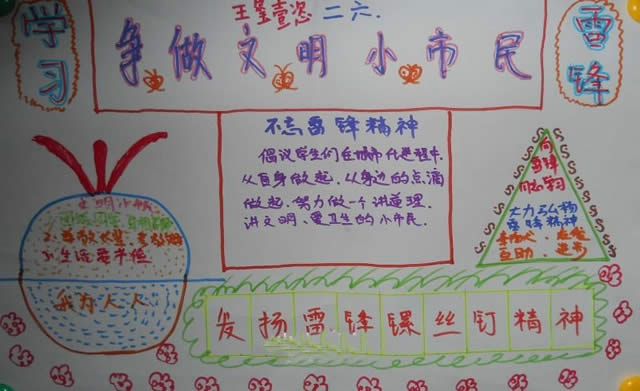 学习
王
二六.
争做文明小市民
雷锋
不忘雷锋精神
倡议学生们在城市化进程中.
从自身做起.从身边的点滴
做起.努力做一个讲道理.
讲文明、爱卫生的小市民.
文明小
2.
3.生活要节俭
我为人人
向雷锋
同志学习
大力弘扬
雷锋精神
互助.进步
发扬雷锋螺丝钉精神